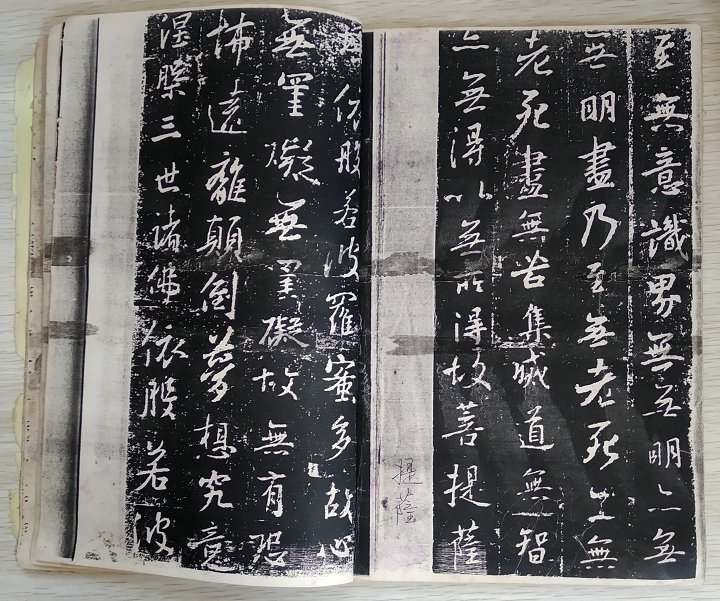 至無意識界無無明亦無
無明盡乃至無老死亦無
老死盡無苦集滅道無智
亦無得以無所得故菩提薩
提薩
依般若波羅蜜多故心
無罣礙無罣礙故無有恐
怖遠離顛倒夢想究竟
涅槃三世諸佛依般若波